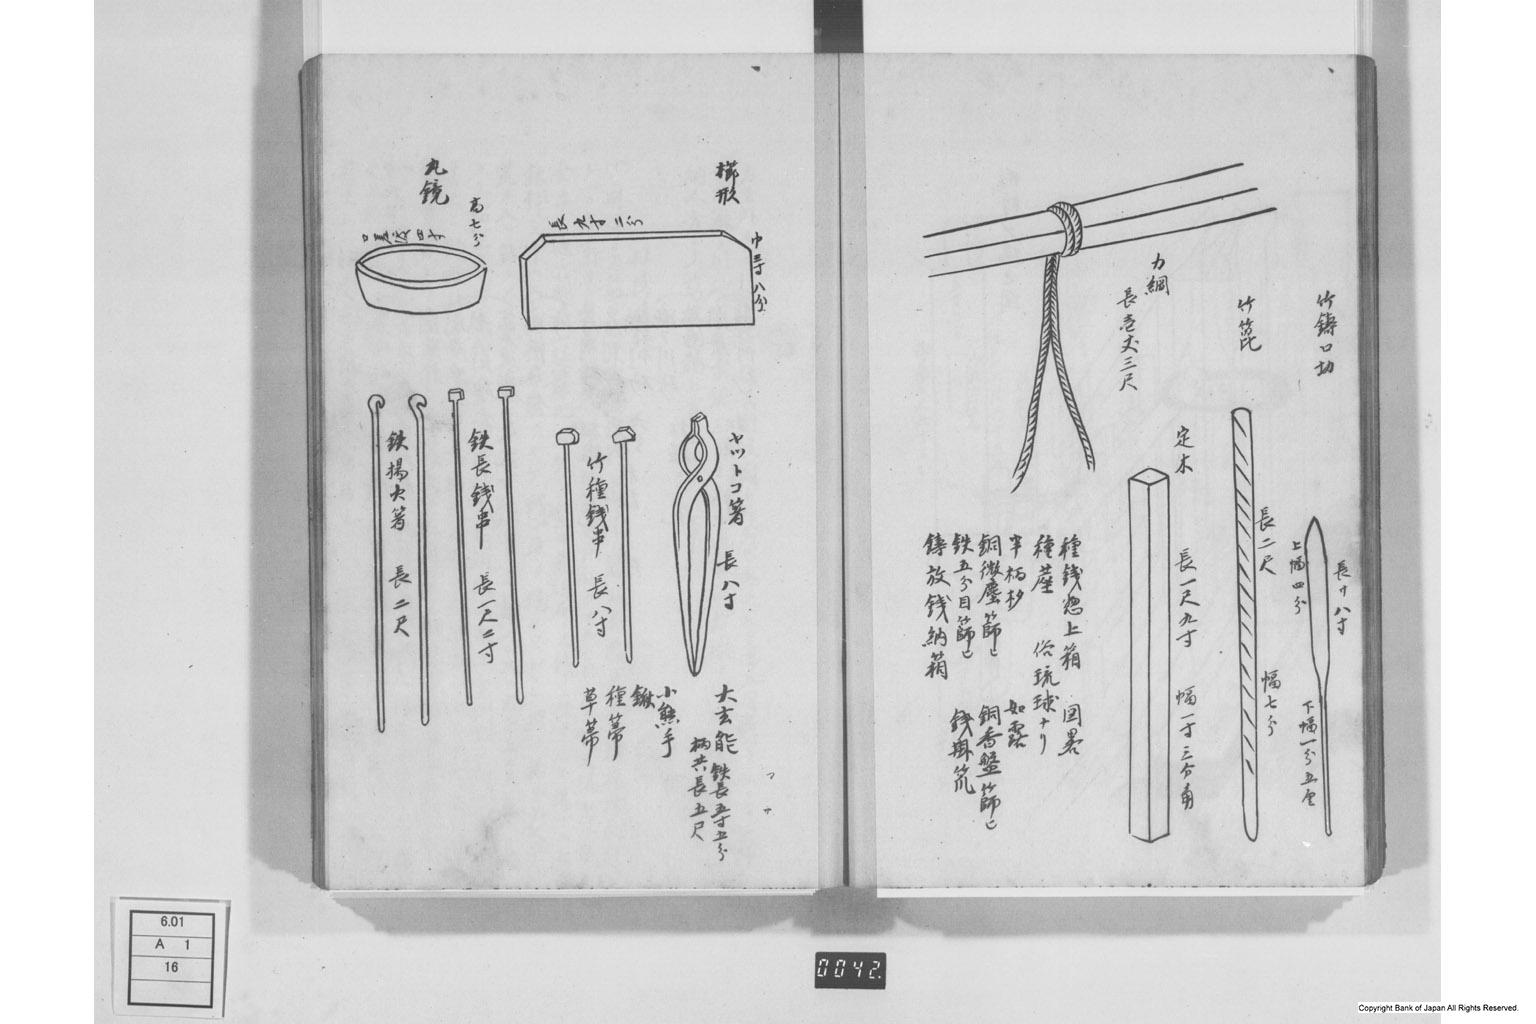 竹鋳口切
長サ八寸
上幅四分
下幅一分五厘
竹箆
長二尺
幅七分
定木
長一尺九寸
幅一寸三分角
力綱
長壱丈三尺
種銭惣上箱 図畧
種莚 俗琉球ナリ
半柄杓 如露
銅微塵篩 銅香盤篩
鉄五分目篩 銭掛笊
鋳放銭納箱
櫛形
長九寸二分
巾三寸八分
丸鏡
高七分
ヤットコ箸
長八寸
竹種銭串
長八寸
鉄長銭串
長一尺二寸
鉄揚火箸
長二尺
大玄能
鉄長五寸五分
柄共長五尺
小熊手
鍬
種箒
草箒
6.01
A 1
16
0042
Copyright Bank of Japan All Rights Reserved.